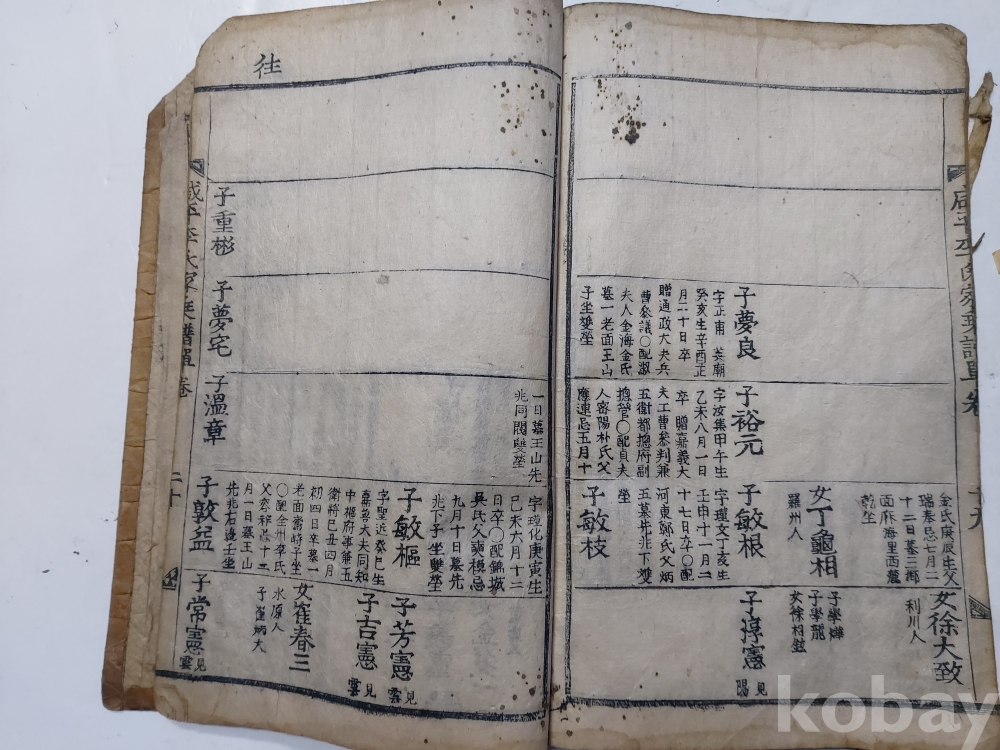 金氏庚辰生父
瑞泰忌七月二
十二日墓三鄕
面麻海里西麓
乾坐
女徐大致
利川人
子學燁
子學龍
女徐相鉉
女丁龜相
羅州人
子夢良
字正甫 英廟
癸亥生辛酉正
月二十日卒
贈通政大夫兵
曹參議○配淑
夫人金海金氏
墓一老面王山
子坐雙塋
子裕元
字汝集甲午生
乙未八月一日
卒 贈嘉義大
夫工曹參判兼
五衛都摠府副
摠管○配貞夫
人密陽朴氏父
應連忌五月十
子敏根
字瑾文丁亥生
壬申十一月二
十七日卒○配
河東鄭氏父炳
五墓先兆下雙
坐
子淳憲
見
陽
子敏枝
往
一日墓王山先
兆同閣雙塋
字瑾化庚寅生
己未六月十二
日卒○配錦城
吳氏父奭稷忌
九月十日墓先
兆下子坐雙塋
子敏樞
字聖近癸巳生
嘉善大夫同知
中樞府事兼五
衛將己丑四月
初四日卒墓一
老面
○配全州李氏
月一日墓王山
先兆石邊壬坐
子芳憲
見
雲
子吉憲
見
雲
女崔春三
水原人
子崔炳大
子重彬
子夢宅
子溫章
子敦盆
子常憲
見
雲
咸平李氏家乘譜單卷
二十